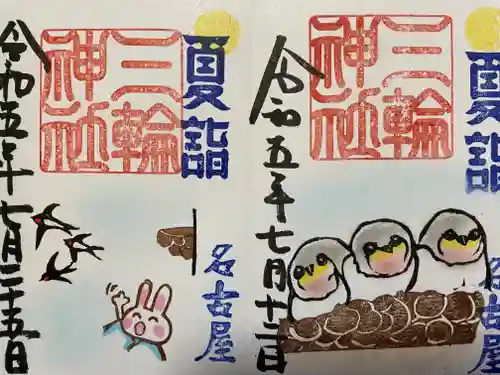 夏詣
三輪
神社
名古屋
令和五年七月二十五日
夏詣
三輪
神社
名古屋
令和五年七月十二日